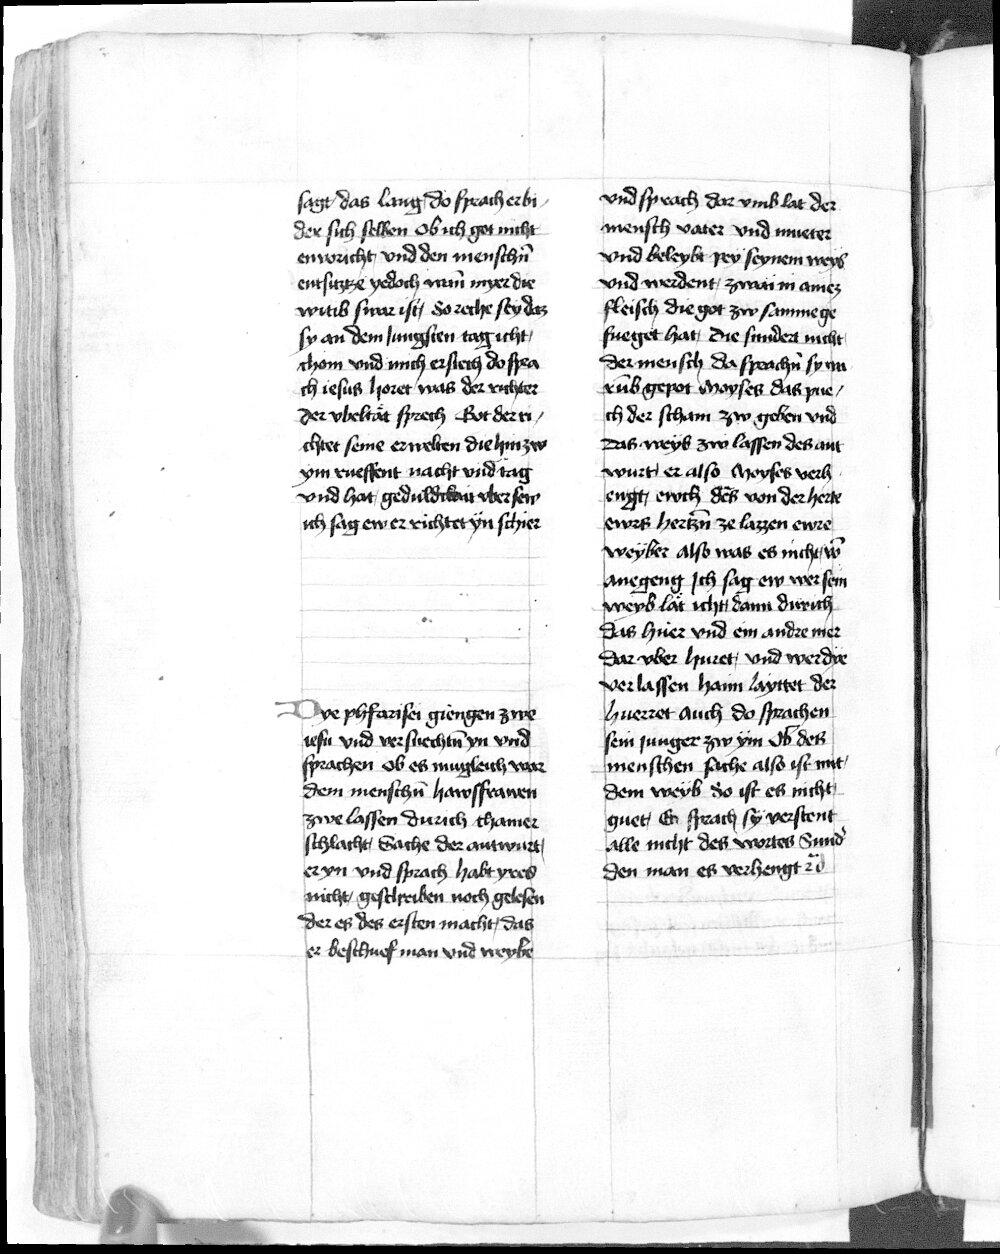 sagt das lang do sprach er bi
der sich selben Ob ich got nicht
enworicht und den menschn̄
entsitze yedoch wan̄ myer die
witib swar ist So reche sey daz
sy an dem Jungsten tag icht
chom und mich erstech do spra
ch iesus horet was der richter
der vbeltät sprech Got der ri
chtet seine erwelten die hin zw
ym rueffent nacht und tag
und hat geduldikait vber sew
ich sag ew er richtet ÿn schier
Dye phfarisei giengen zwe
iesu und versuechtn̄ yn und
sprachen Ob es mugleich war
dem menschn̄ hawsfrawen
zwe lassen durich chamer
schlacht Sache der antwurt
er yn und sprach habt yres
nicht geschreiben noch gelesen
der es des ersten macht das
er beschuef man und weybe
und sprach dar vmb lat der
mensch vater und mueter
und beleybt pey seynem weyb
und werdent zwai in ainez
fleisch die got zw samme ge
fueget hat die sundert nicht
der mensch da sprachn̄ sy wa
rūb gepot Moyses das pue
ch der scham zw geben und
das weyb zw lassen des ant
wurt er also Moyses verh
engt ewch des von der herte
ewrs hertzn̄ ze lazzen ewre
weyber also was es nicht vō
anegeng Ich sag ew wer sein
weyb lät icht dann durich
das huer und ein andre mer
dar vber huret und wer dye
verlassen haim layttet der
huerret auch do sprachen
sein Junger zw ym Ob des
menschen sache also ist mit
dem weyb So ist es nicht
guet Er sprach sy verstent
alle nicht des wortes Sund
den man es verhengt